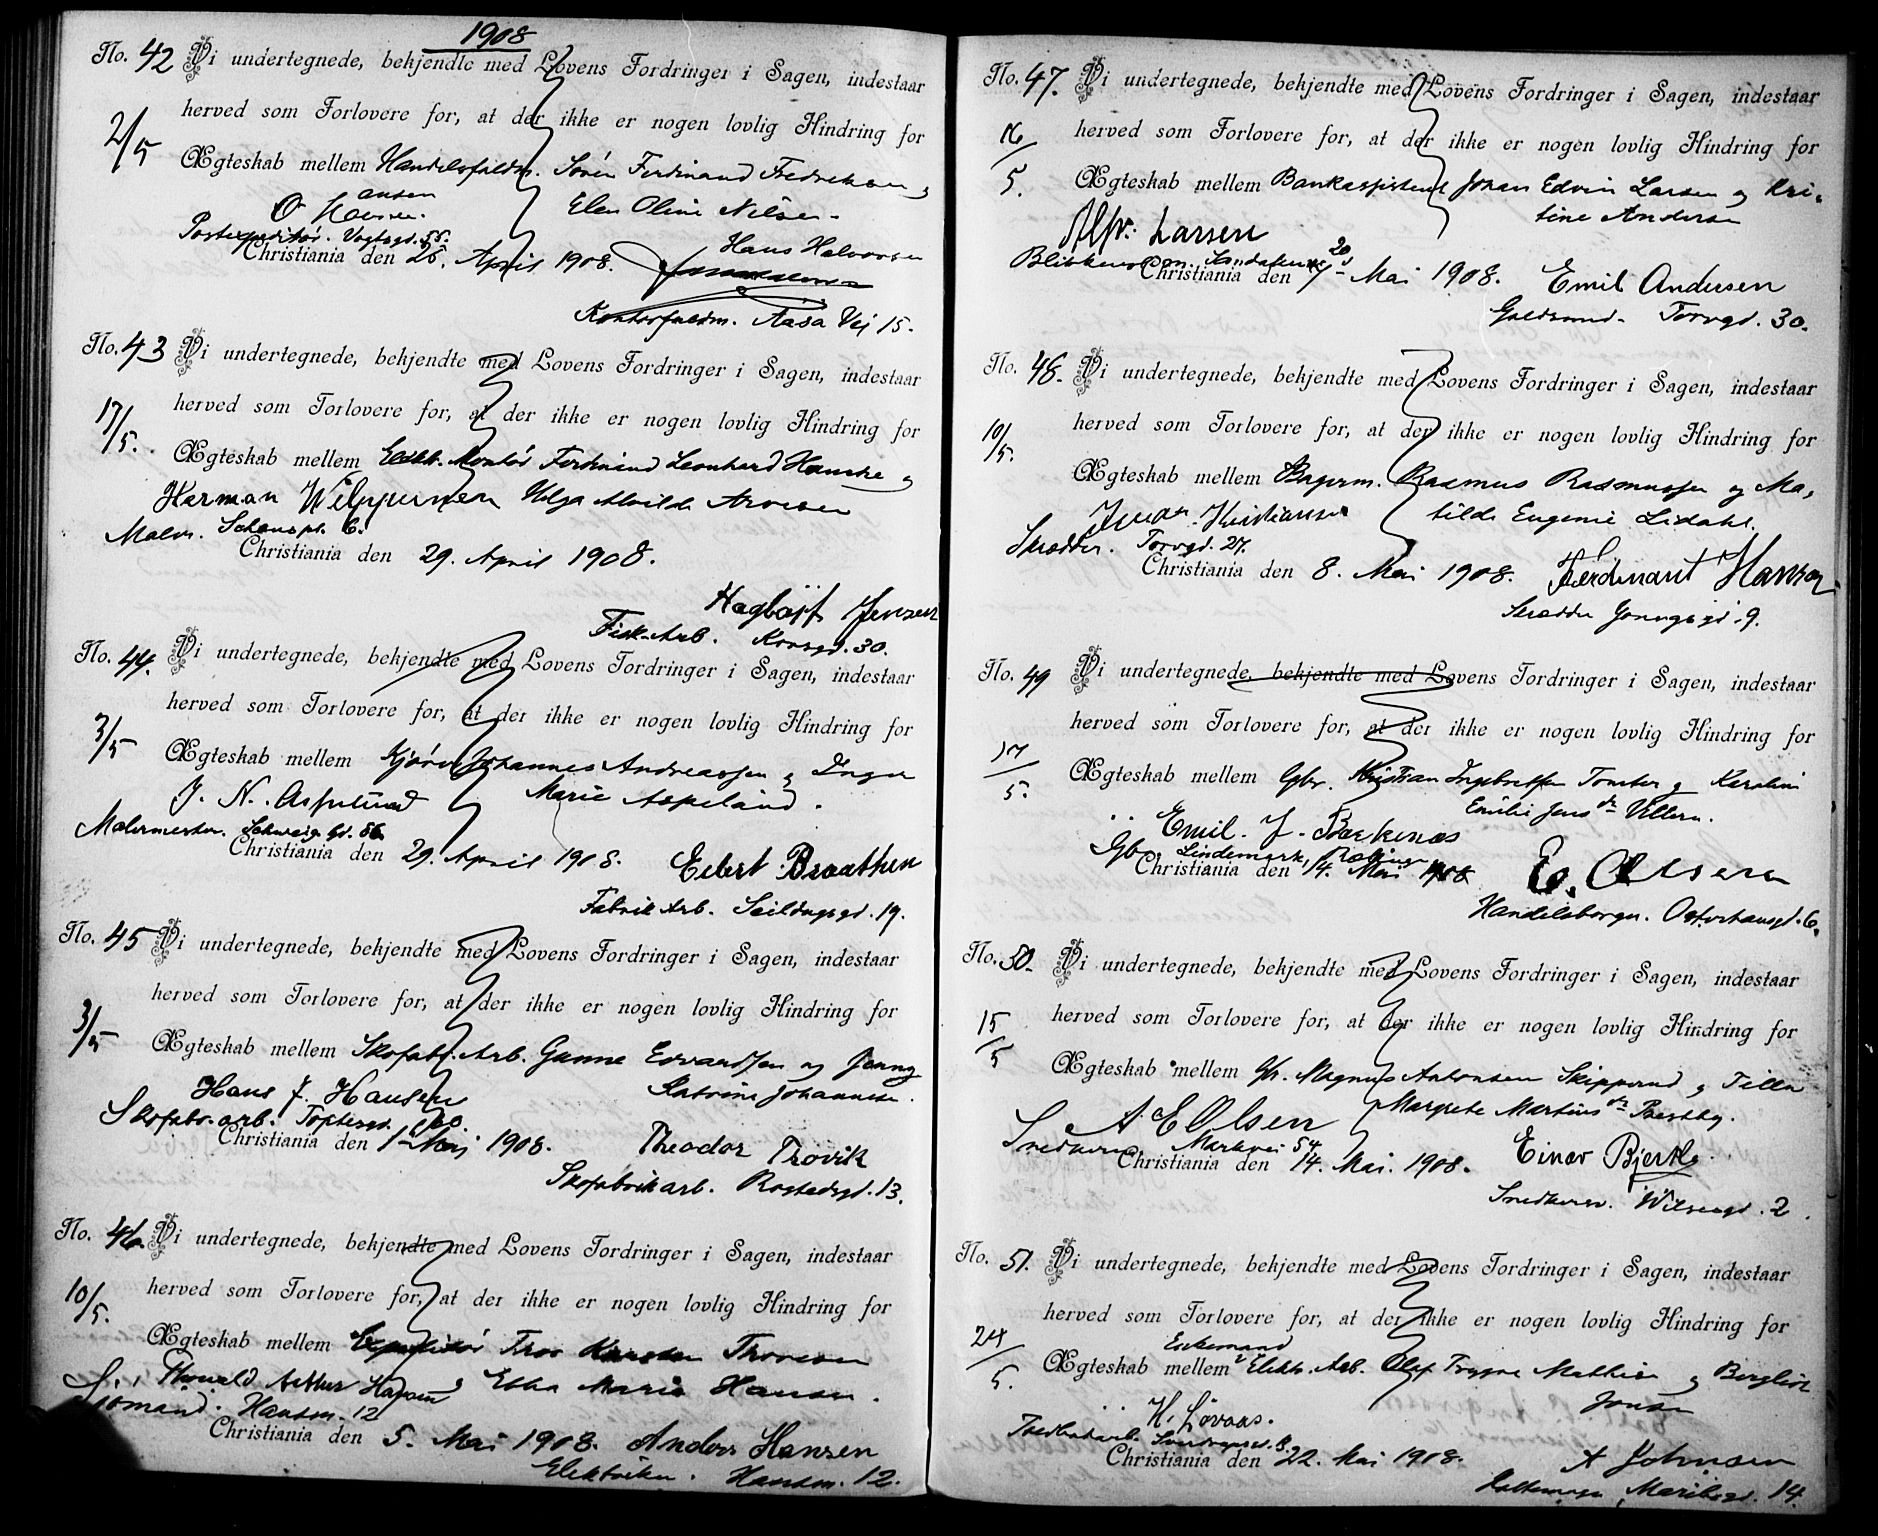 1908
No. 42 Vi undertegnede, bekjendte med Lovens Fordringer i Sagen, indestaar
herved som Forlovere for, at der ikke er nogen lovlig Hindring for
2/5
Ægteskab mellem Handelsfuldm. Sören Ferdinand Fredriksen &
Elen Oline Nilsen
O Hansen
Postexpeditör. Vogtsgd. 55.
Christiania den 25. April 1908.
Hans Halvorsen
Kontorfuldm. Aasa Vej 15.
No. 43 Vi undertegnede, bekjendte med Lovens Fordringer i Sagen, indestaar
herved som Forlovere for, at der ikke er nogen lovlig Hindring for
17/5.
Ægteskab mellem Elekt. Montör Ferdinand Leonhard Hanske &
Herman Helga Alvilde
Malm.
Christiania den 29. April 1908.
Hagbart Jensen
Arb. Korsgd. 30.
No. 44. Vi undertegnede, bekjendte med Lovens Fordringer i Sagen, indestaar
herved som Forlovere for, at der ikke er nogen lovlig Hindring for
3/5
Ægteskab mellem Johannes Andreassen & Inga
Marie Aspelund.
J. N. Aspelund
Malermester. Schweigsgd. 56
Christiania den 29. April 1908.
Eilert Braathen
Fabrik Arb. Seildugsgd. 19.
No. 45 Vi undertegnede, bekjendte med Lovens Fordringer i Sagen, indestaar
herved som Forlovere for, at der ikke er nogen lovlig Hindring for
3/5
Ægteskab mellem Skofabr. Arb. Gunne Edvardsen og Jenny
Katrine Johannesen.
Hans J. Hansen
Skofabr. arb. Toftesgd.
Christiania den 1ste Maj 1908.
Theodor Trovik
Skofabrikarb. Rostedsgd. 13.
No. 46. Vi undertegnede, bekjendte med Lovens Fordringer i Sagen, indestaar
herved som Forlovere for, at der ikke er nogen lovlig Hindring for
10/5.
Ægteskab mellem Expeditör Karsten Thoresen
& Ebba Marie Hansen.
Thorvald Arthur Hansen
Sjömand. Hausm. 12
Christiania den 5. Mai 1908.
Anders Hansen
Elektriker. Hausm. 12.
No. 47. Vi undertegnede, bekjendte med Lovens Fordringer i Sagen, indestaar
herved som Forlovere for, at der ikke er nogen lovlig Hindring for
16/5.
Ægteskab mellem Bankassistent Johan Edvin Larsen og Kri-
stine Andersen
Alfr. Larsen
Blikkenslagerm. Sandakerv. 20
Christiania den 7- Mai 1908.
Emil Andersen
Guldsmed. Torvgd. 30.
No. 48. Vi undertegnede, bekjendte med Lovens Fordringer i Sagen, indestaar
herved som Forlovere for, at der ikke er nogen lovlig Hindring for
10/5.
Ægteskab mellem Bagerm. Rasmus Rasmussen og Ma-
tilde Eugenie Lidahl.
Kristiansen
Skrædder. Torvgd. 27.
Christiania den 8. Mai 1908.
Ferdinant Hansen
Skrædder Youngsgd. 9.
No. 49 Vi undertegnede, bekjendte med Lovens Fordringer i Sagen, indestaar
herved som Forlovere for, at der ikke er nogen lovlig Hindring for
17/5.
Ægteskab mellem Gbr. Kristian Ingebretsen Tomter & Karoline
Emilie Jensdr Ullern.
Emil. J. Backenæs
Gbr. Lindemark, Rælingen
Christiania den 14. Mai 1908
E. Olsen
Handelsborger. Osterhausgd. 6.
No. 50. Vi undertegnede, bekjendte med Lovens Fordringer i Sagen, indestaar
herved som Forlovere for, at der ikke er nogen lovlig Hindring for
15/5
Ægteskab mellem Gbr. Magnus Antonsen Skipperud & Tilla
Margrete Martinsdr
A E Olsen
Snedkerm. Markvei 54
Christiania den 14. Mai. 1908.
Einar Bjerke.
Snedkersv. Wilsesgd. 2.
No. 51. Vi undertegnede, bekjendte med Lovens Fordringer i Sagen, indestaar
herved som Forlovere for, at der ikke er nogen lovlig Hindring for
24/5.
Enkemand
Ægteskab mellem Elektr. Arb. Olaf Trygve Mathisen & Bergliot
Jonsen
H. Lövaas.
Christiania den 22. Mai 1908.
A Johnsen
Maribogd. 14.